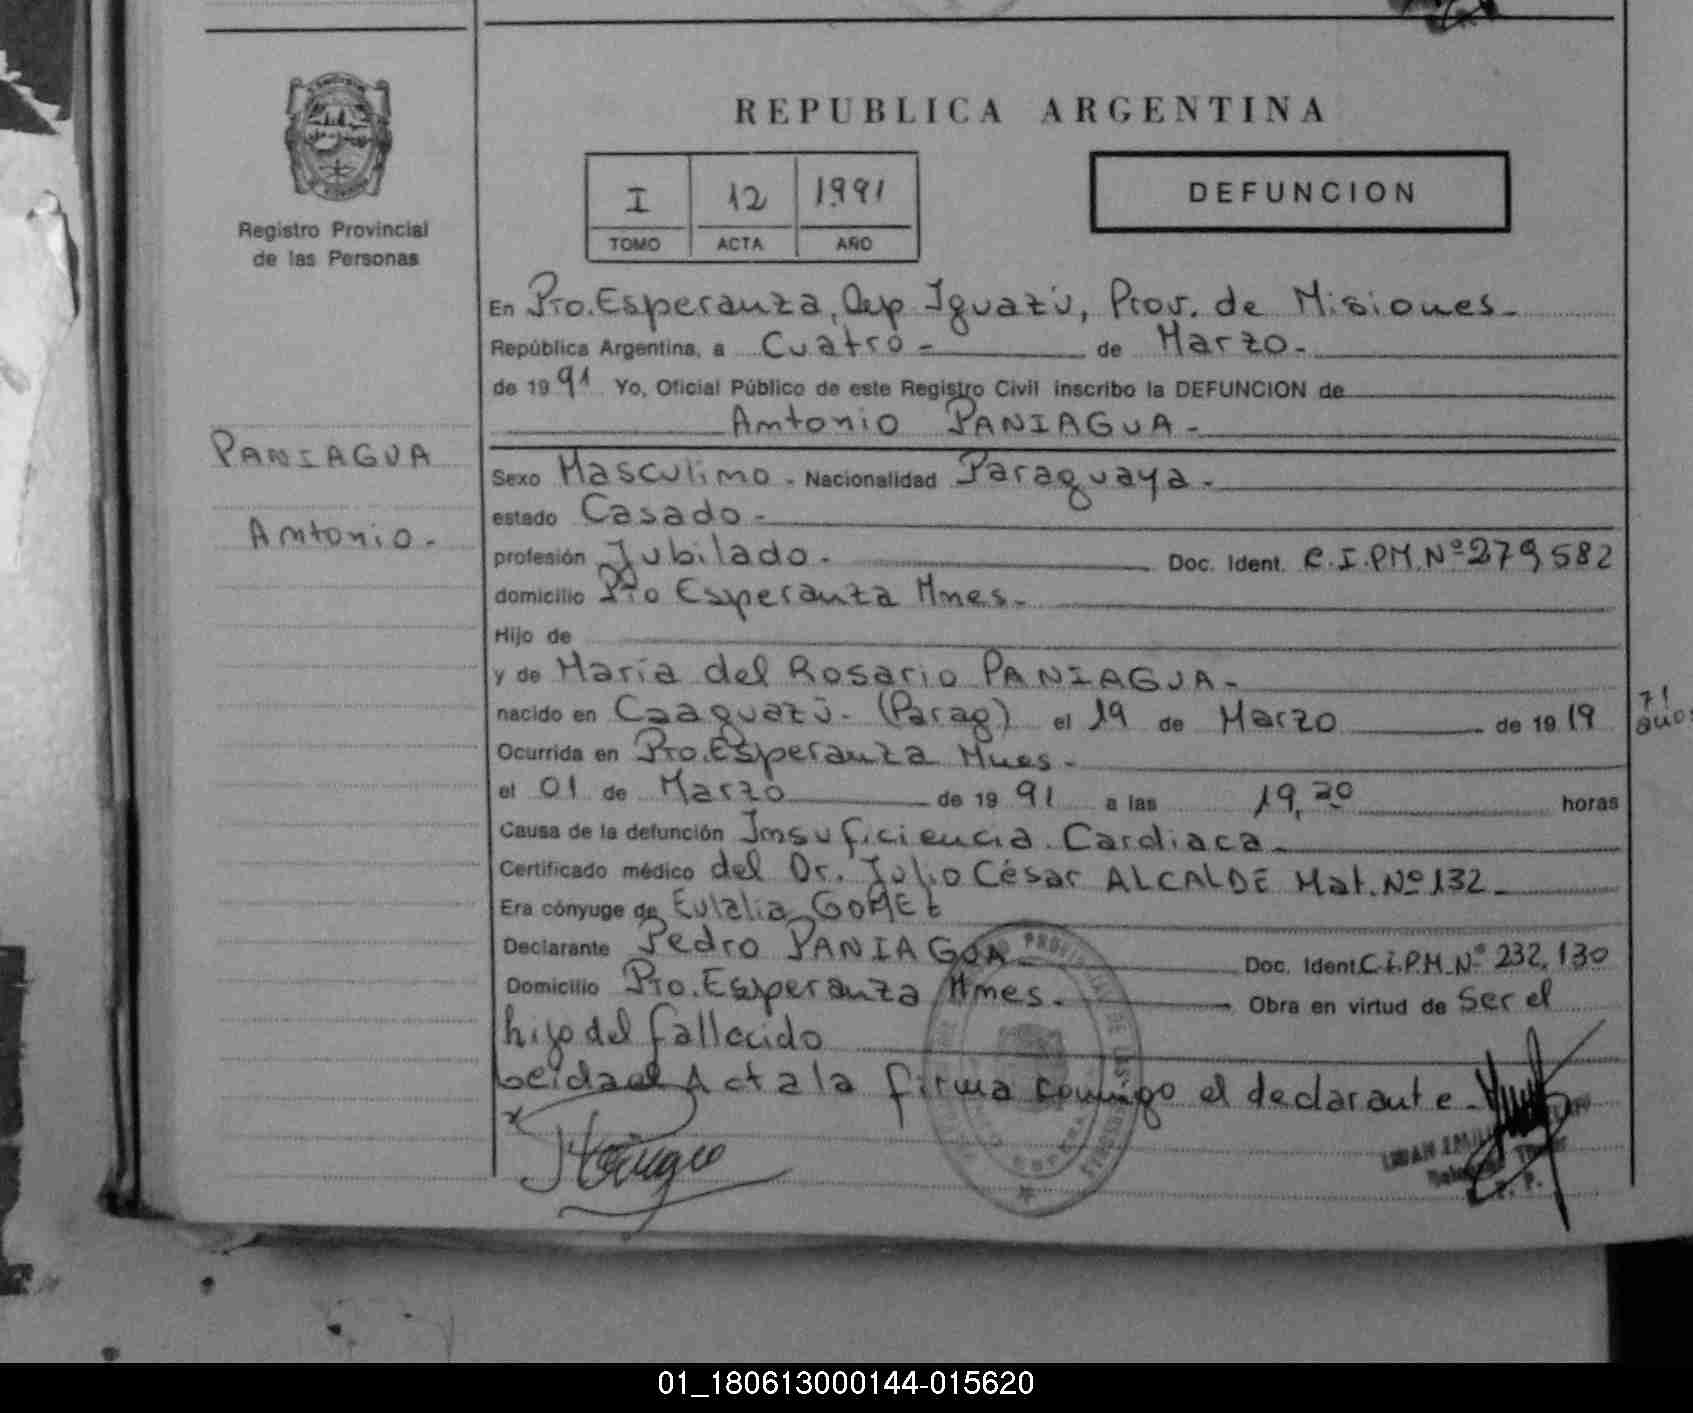 REPUBLICA ARGENTINA
I 12 1991
TOMO ACTA AÑO
DEFUNCION
Registro Provincial
de las Personas
PANIAGUA
Antonio.-
En Pto. Esperanza, Dep Iguazú, Prov. de Misiones.-
República Argentina, a Cuatro.- de Marzo.-
de 1991 Yo, Oficial Público de este Registro Civil inscribo la DEFUNCION de
Antonio PANIAGUA.-
Sexo Masculino.- Nacionalidad Paraguaya.-
estado Casado.-
profesión Jubilado.- Doc. Ident. C.I.P.M. Nº 279582
domicilio Pto Esperanza Mnes.-
Hijo de
y de María del Rosario PANIAGUA.-
nacido en Caaguazú.- (Parag) el 19 de Marzo de 1919 71 años
Ocurrida en Pto. Esperanza Mnes.-
el 01 de Marzo de 1991 a las 19,30 horas
Causa de la defunción Insuficiencia Cardiaca.-
Certificado médico del Dr. Julio César ALCALDE Mat. Nº 132.-
Era cónyuge de Eulalia GOMEZ
Declarante Pedro PANIAGUA Doc. Ident C.I.P.M. Nº 232.130
Domicilio Pto. Esperanza Mnes.- Obra en virtud de Ser el
hijo del fallecido
Leida el Acta la firma conmigo el declarante.-
01_180613000144-015620